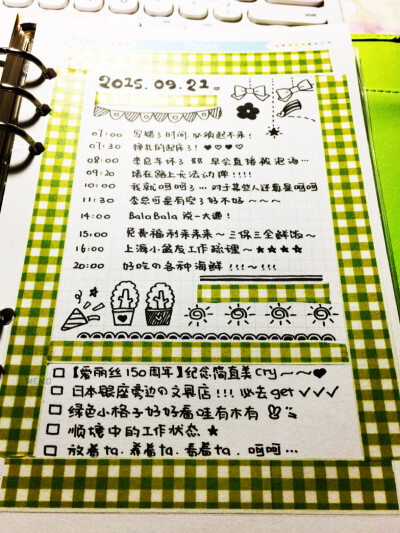 2015.09.21.
07:00 写错了时间.必须起不来!
07:30 挣扎的起床了!♥♥♥♥
08:00 李总车坏了 早会直接被泡汤…
09:20 堵在路上无法动弹!!!!
10:00 我就呵呵了…对于某些人还真是呵呵
11:30 李总可是有空了好不好~~~
14:00 BalaBala 说一大通!
15:00 免费福利来来来~三保三全鲜饭~
16:00 上海小盆友工作梳理~★★★★
20:00 好吃の各种海鲜!!!~!!!
□【爱丽丝150周年】纪念简直美cry~~♥
□ 日本银座旁边の文具店!!!必去get✓✓✓
□ 绿色小格子好好看哇有木有
□ 顺境中的工作状态★
□ 放着ta.养着ta.看着ta.呵呵…